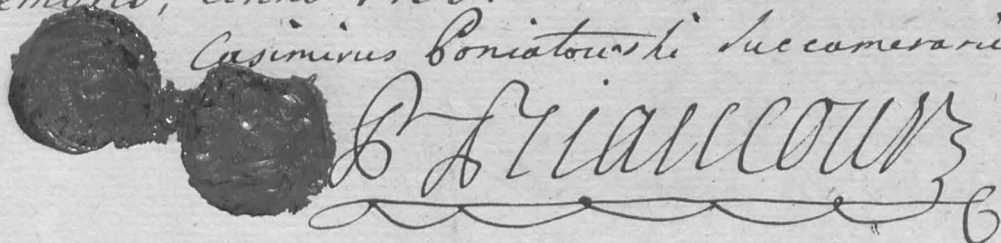 anno
Casimirus Poniatowski Succamerarie
P Riaucour